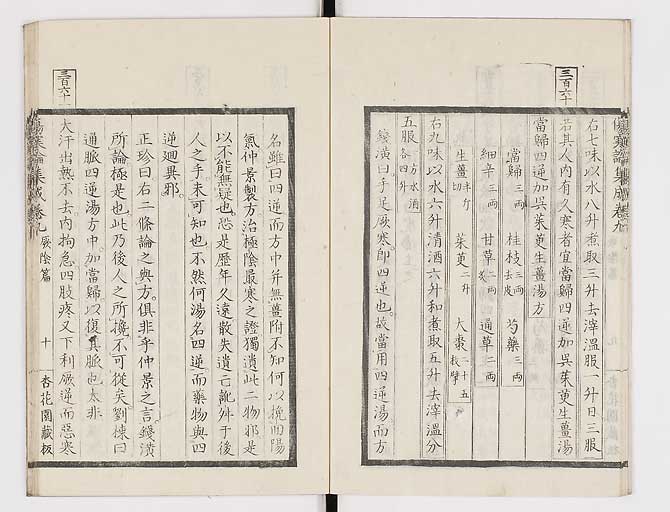 三百六十
傷寒論集成卷九
右七味以水八升煮取三升去滓溫服一升日三服
若其人内有久寒者宜當歸四逆加吳茱萸生薑湯
當歸四逆加吳茱萸生薑湯方
當歸三兩 桂枝三兩去皮 芍藥三兩
細辛三兩 甘草二兩炙 通草二兩
生薑半斤切 茱萸二升 大棗二十五枚擘
右九味以水六升清酒六升和煮取五升去滓溫分
五服一方水酒各四升
錢潢曰手足厥寒即四逆也故當用四逆湯而方
名雖曰四逆而方中幷無薑附不知何以挽回陽
氣仲景製方治極陰最寒之證獨遺此二物邪是
以不能無疑也恐是歷年久遠散失遺亡訛舛于後
人之手未可知也不然何湯名四逆而藥物與四
逆迥異邪
正珍曰右二條論之與方俱非乎仲景之言錢潢
所論極是也此乃後人之所攙不可從矣劉棟曰
通脈四逆湯方中加當歸以復其脈也太非
大汗出熱不去内拘急四肢疼又下利厥逆而惡寒
三百六十一
傷寒論集成卷九 厥陰篇 十 杏花園藏板